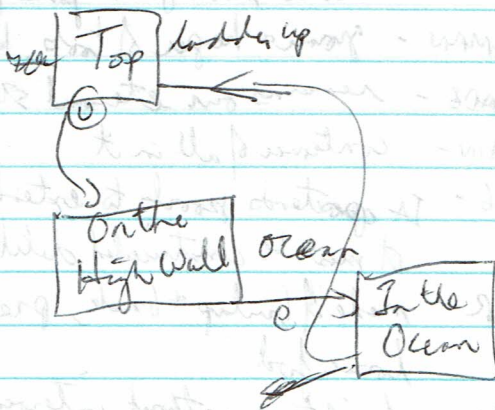 Top
ladder up
U
On the
High Wall
ocean
e
In the
Ocean